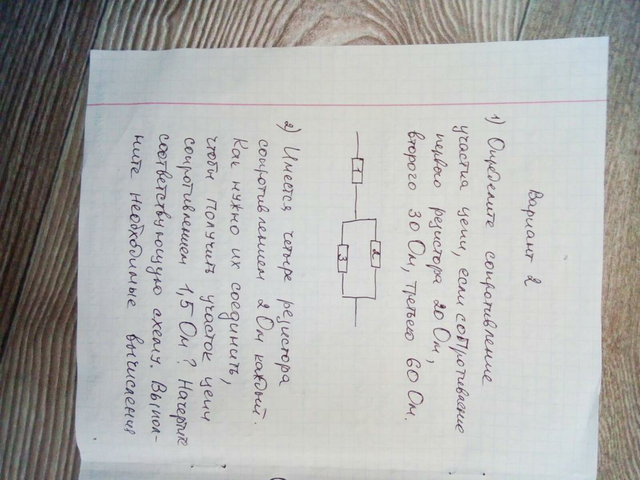 Вариант 2
1) Определите сопротивление
участка цепи, если сопротивление
первого резистора 20 Ом,
второго 30 Ом, третьего 60 Ом.
1
2
3
2) Имеется четыре резистора
сопротивлением 2 Ом каждый.
Как нужно их соединить,
чтобы получить участок цепи
сопротивлением 1,5 Ом? Начертите
соответствующую схему. Выпол-
ните необходимые вычисления